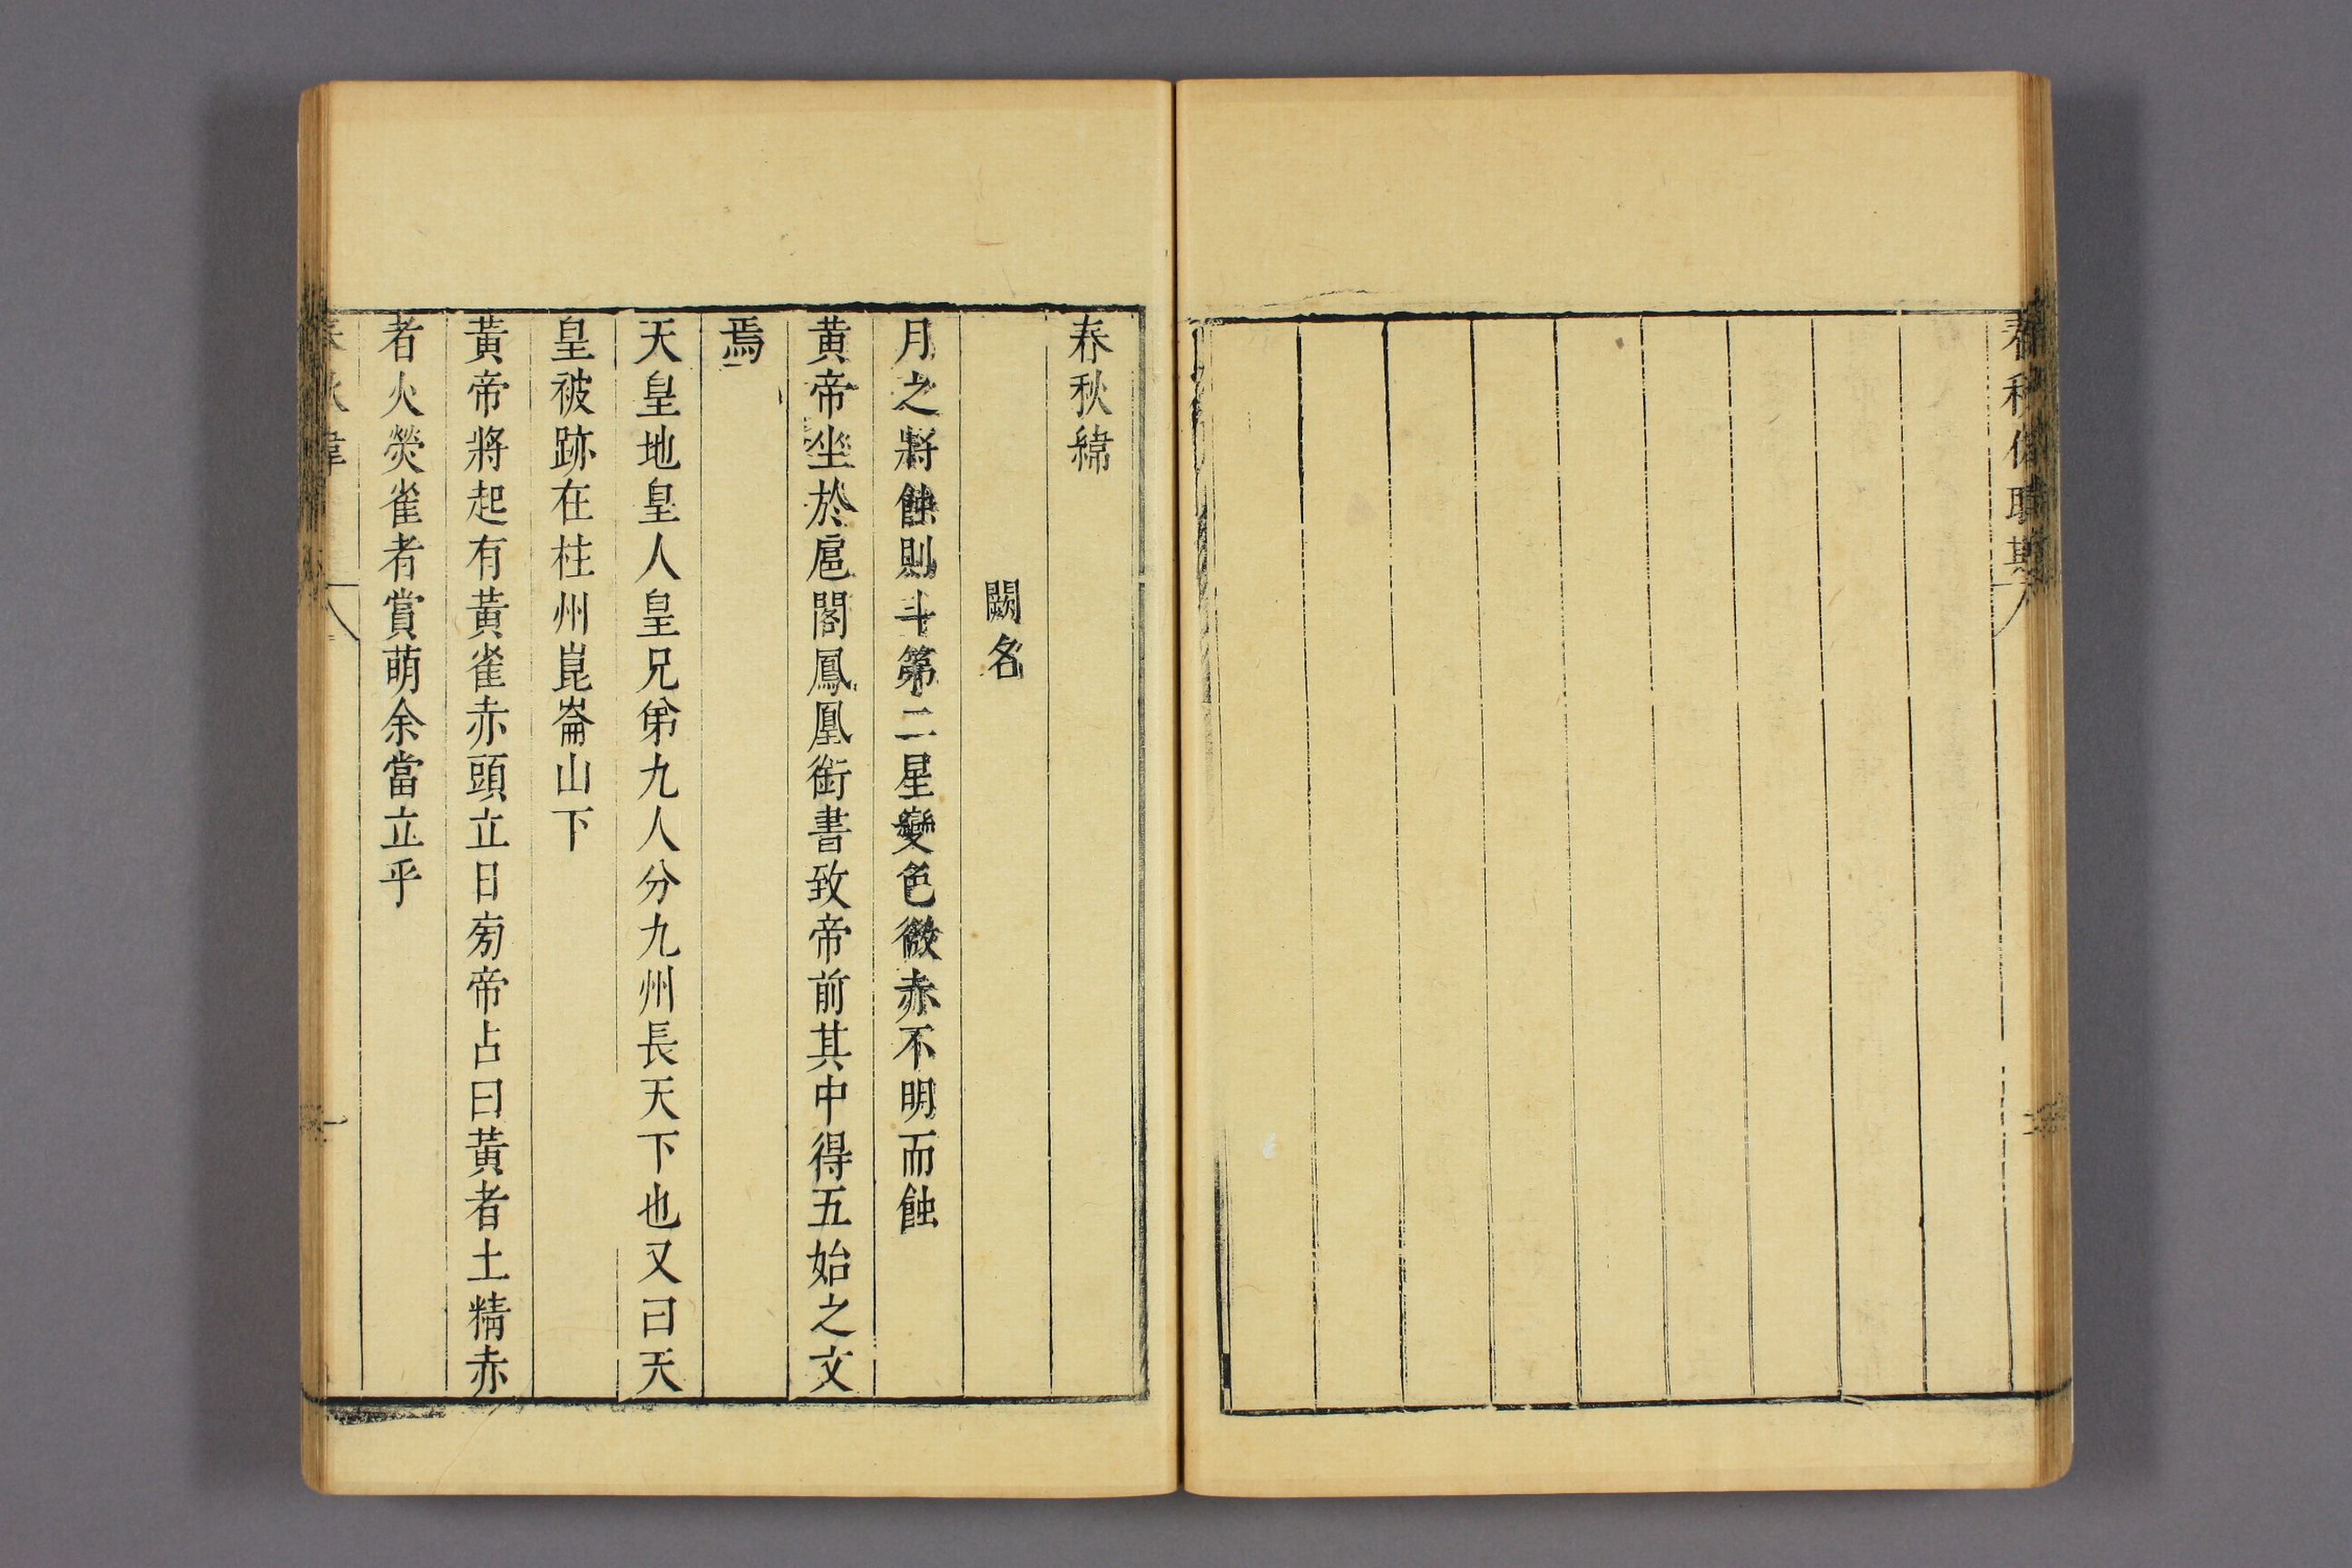 春秋佐助期
春秋緯
闕名
月之將蝕則斗第二星變色微赤不明而蝕
黄帝坐於扈閣鳳凰銜書致帝前其中得五始之文
焉
天皇地皇人皇兄弟九人分九州長天下也又曰天
皇被跡在柱州崑崙山下
黃帝將起有黃雀赤頭立日旁帝占曰黃者土精赤
者火熒雀者賞萌余當立乎
春秋緯